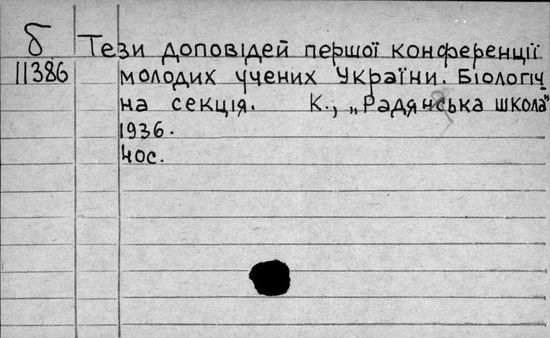 б Тези доповідей першої конференції
11386 молодих учених України. Біологіч
на секція. К., „Радянська школа"
1936.
40с.